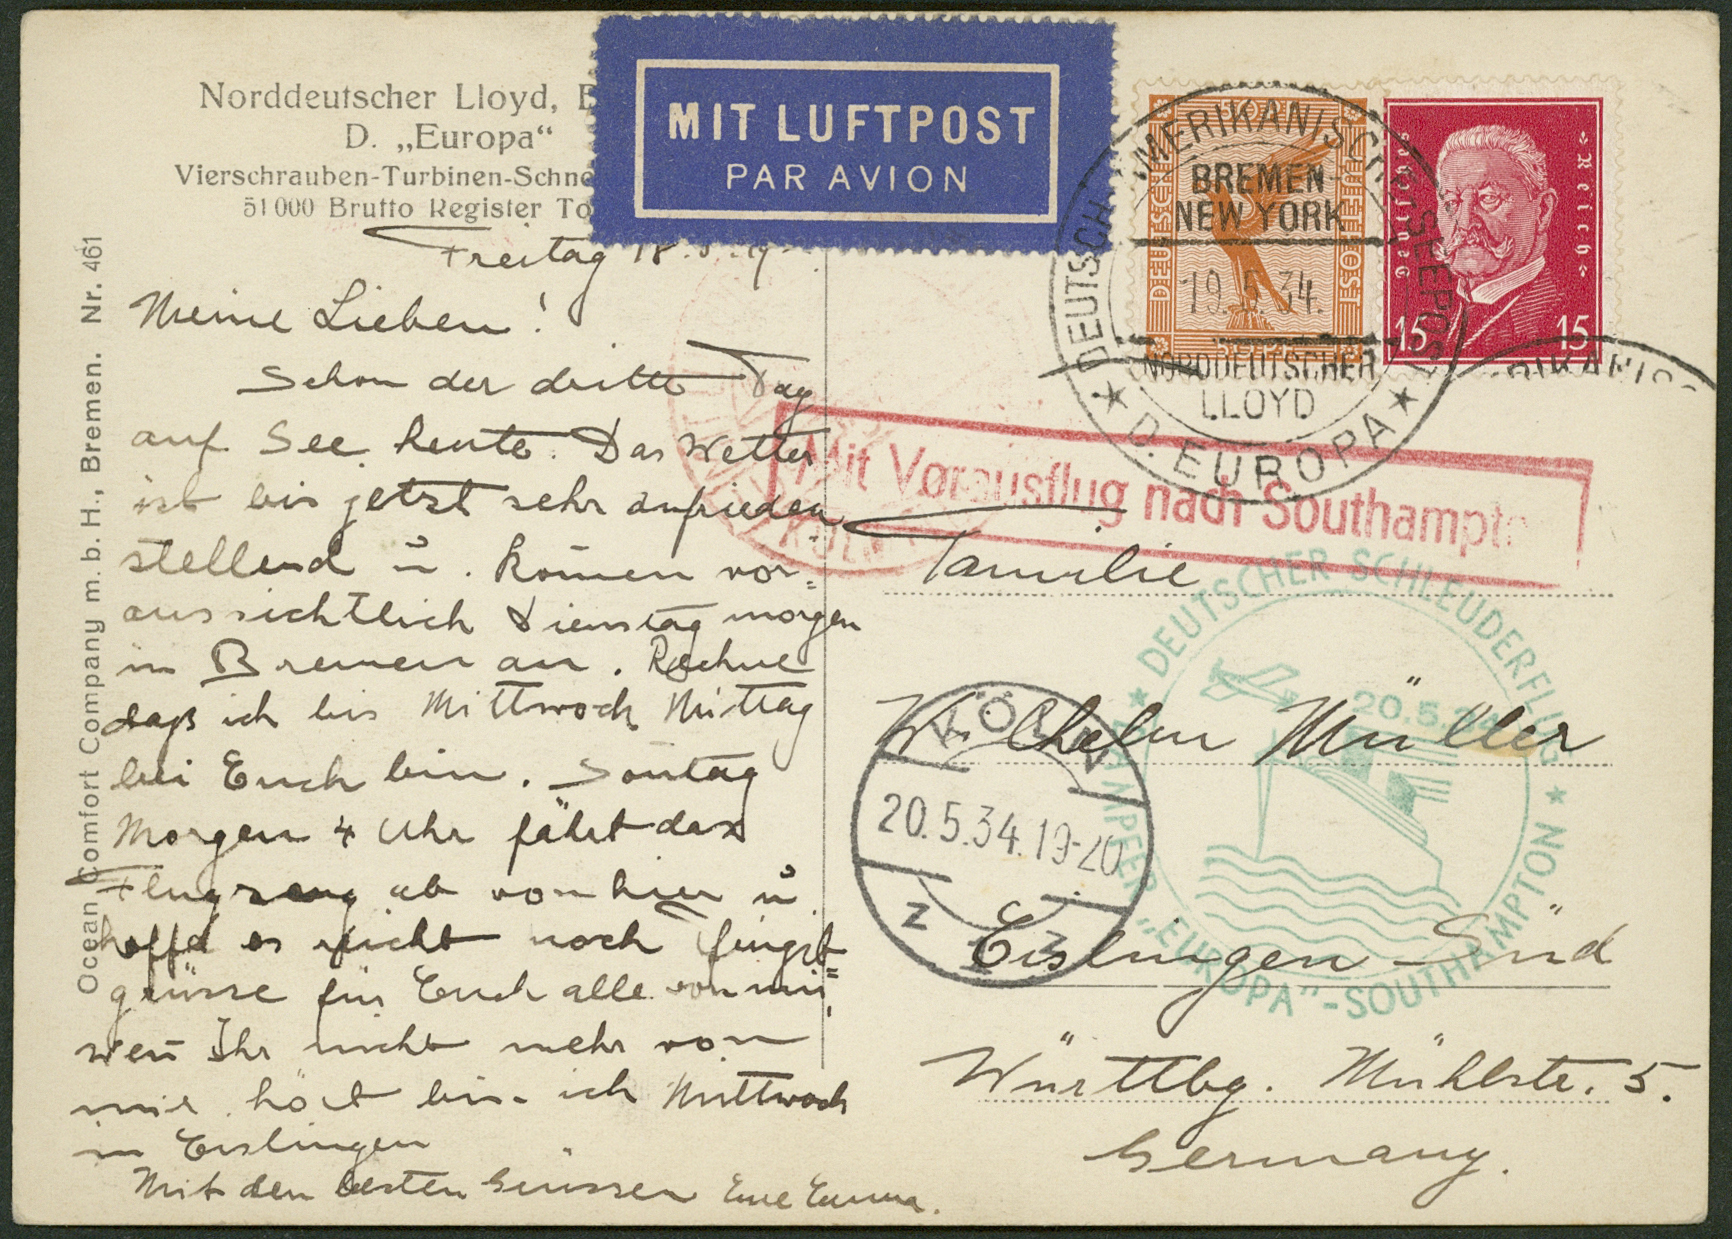 Norddeutscher Lloyd,
D. „Europa“
Vierschrauben-Turbinen-
51000 Brutto Register
MIT LUFTPOST
PAR AVION
Freitag 18.5.
Meine Lieben!
Schon der dritte Tag
auf See heute. Das Wetter
ist bis jetzt sehr zufrieden
stellend u. kommen vor=
aussichtlich Dienstag morgen
in Bremen an. Rechne
daß ich bis Mittwoch Mittag
bei Euch bin. Sonntag
Morgen 4 Uhr fährt das
Flugzeug ab von hier u
hoffe es reicht noch Pfingst
grüsse für Euch alle von mir,
wenn Ihr nicht mehr von
mir hört bis ich Mittwoch
in Eislingen
Mit den besten Grüssen Eure Emma.
Ocean Comfort Company m. b. H., Bremen. Nr. 461
DEUTSCH AMERIKANISCHE SEEPOST
BREMEN-
NEW YORK
19.5.34.
NORDDEUTSCHER
LLOYD
★ D. EUROPA ★
DEUTSCHE LUFTPOST
Deutsches Reich
15 15
Mit Vorausflug nach Southampton
KÖLN
20.5.34.19-20
★ DEUTSCHER SCHLEUDERFLUG ★
20.5.34
DAMPFER „EUROPA“-SOUTHAMPTON
Familie
Wilhelm Müller
Eislingen-Süd
Württbg. Mühlstr. 5.
Germany.